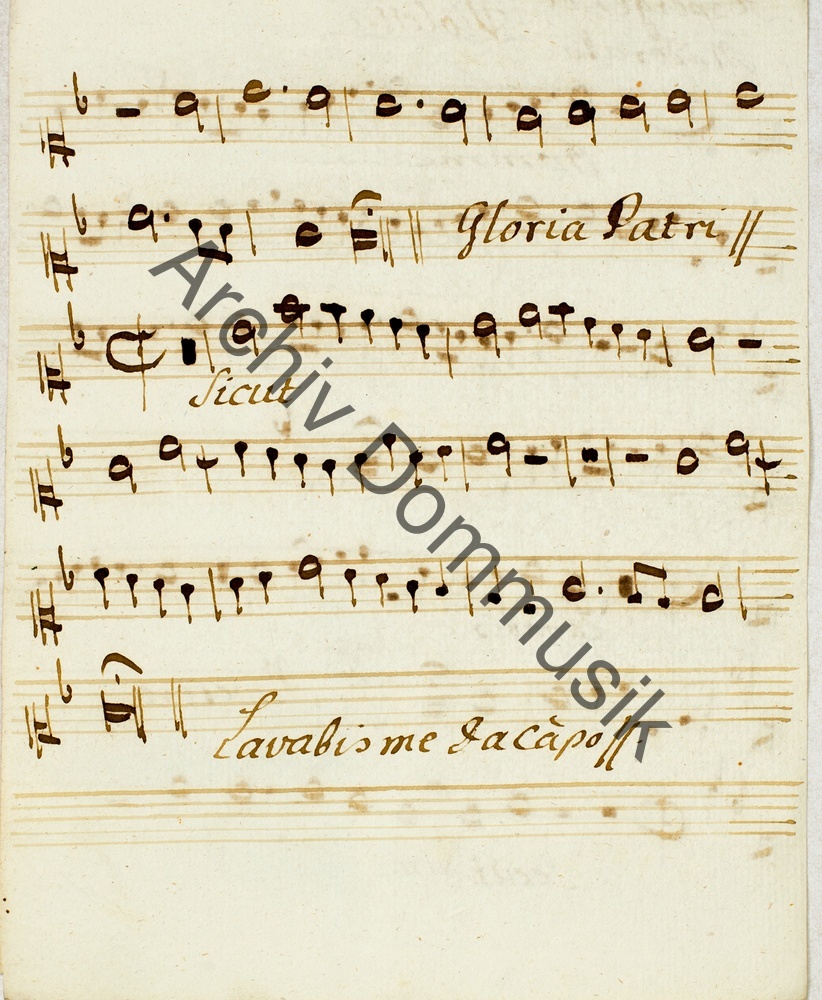 Gloria Patri //
Sicut
Lavabis me da càpo //.
Archiv Dommusik